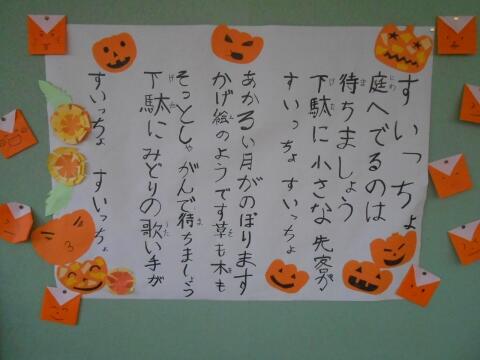 すいっちょ
庭へでるのは
待ちましょう
下駄に小さな先客が
すいっちょ すいっちょ
あかるい月がのぼります
かげ絵のようです草も木も
そっとしゃがんで待ちましょう
下駄にみどりの歌い手が
すいっちょ すいっちょ